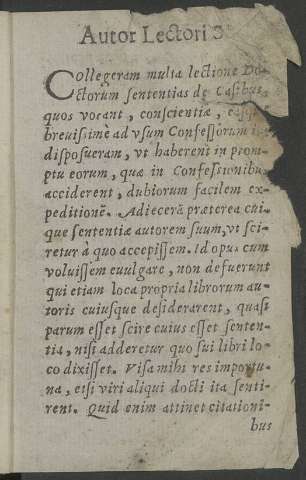 Autor Lectori S
Collegeram multa lectione Do-
ctorum sententias de Casibus,
quos vocant, conscientiæ, easq́
breuissimè ad vsum Confessorum
disposueram, vt haberent in prom-
ptu eorum, quæ in Confessionibus
acciderent, dubiorum facilem ex-
peditionē. Adiecerā præterea cui-
que sententiæ autorem suum, vt sci-
retur à quo accepissem. Id opus cum
voluissem euulgare, non defuerunt
qui etiam loca propria librorum au-
toris cuiusque desiderarent, quasi
parum esset scire cuius esset senten-
tia, nisi adderetur quo sui libri lo-
co dixisset. Visa mihi res importu-
na, etsi viri aliqui docti ita senti-
rent. Quid enim attinet citationi-
bus